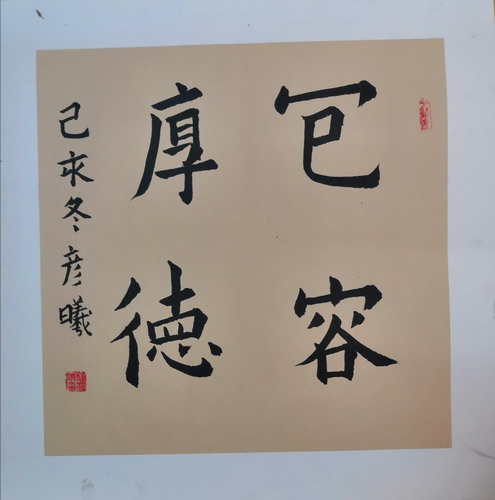 包容
厚德
己亥冬彦曦